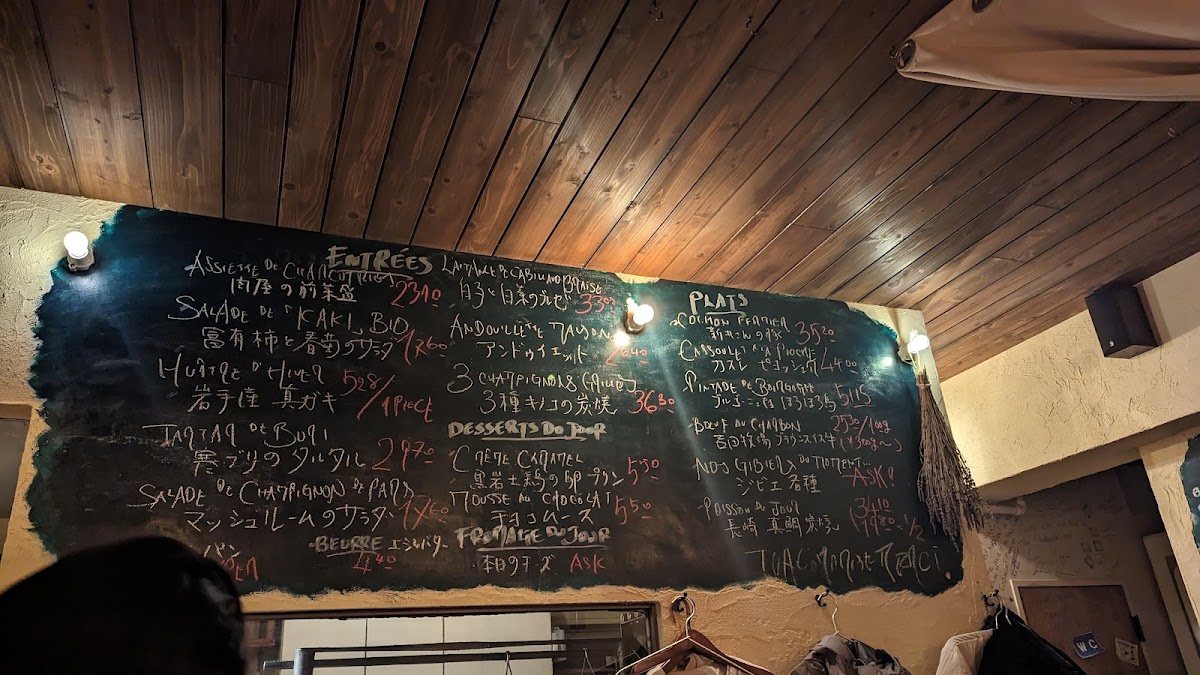 ENTRÉES
ASSIETTE DE CHARCUTERIES
肉屋の前菜盛 2310
SALADE DE "KAKI" BIO
富有柿と春菊のサラダ 1760
HUÎTRE D'HIVER
岩手産 真ガキ 528/1PIECE
TARTAR DE BURI
寒ブリのタルタル 2970
SALADE DE CHAMPIGNON DE PARIS
マッシュルームのサラダ
パン
LAITANCE DE CABILLAUD BRAISE
白子と白菜のブレゼ
ANDOUILLETTE MAISON
アンドゥイエット 2640
3 CHAMPIGNONS GRILLES
3種キノコの炭焼 3630
DESSERTS DU JOUR
CRÈME CARAMEL
黒岩土鶏の卵プリン 550
MOUSSE AU CHOCOLAT
チョコムース 550
BEURRE エシレバター 440
FROMAGE DU JOUR
本日のチーズ ASK
PLATS
COCHON FERMIER
3520
CASSOULET
カスレ ピヨッシュ風 4400
PINTADE DE BOURGOGNE
ブルゴーニュ産 ほろほろ鳥 5115
BOEUF AU CHARBON
吉田牧場 ブラウンスイス牛 /100g
NOS GIBIERS DU MOMENT...
ジビエ各種 ASK!
POISSON DU JOUR
長崎 真鯛 炭焼 3410
(1980 1/2
MERCI
WC